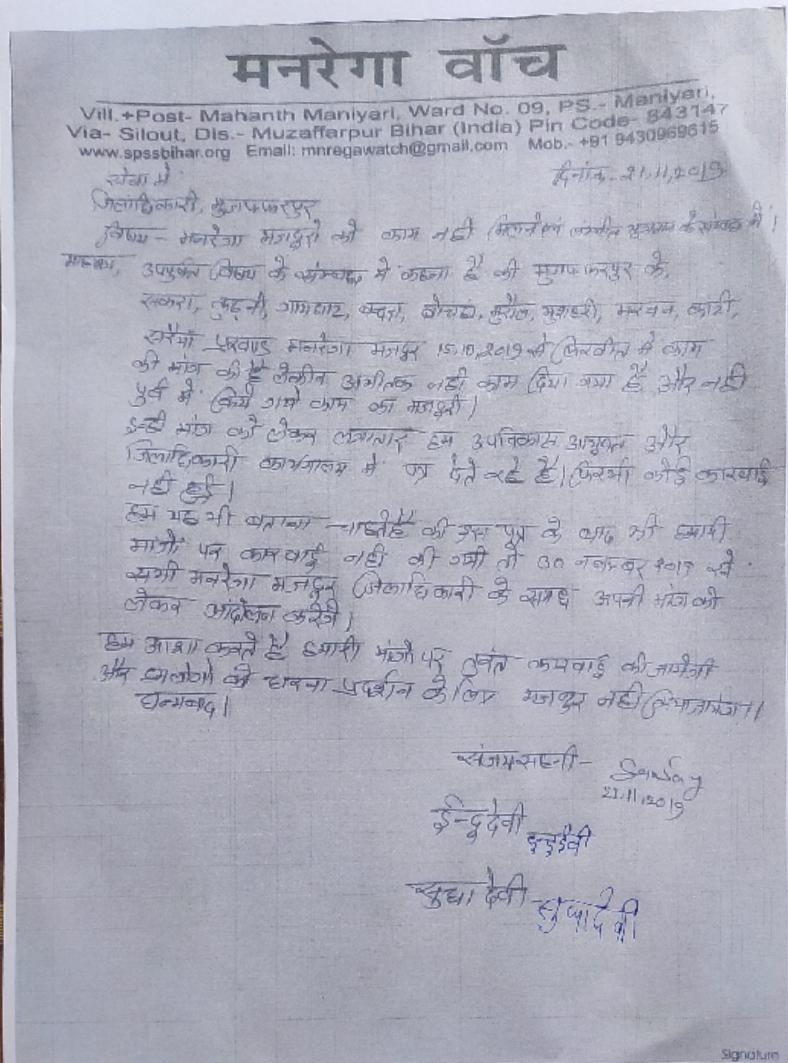 मनरेगा वॉच
Vill.+Post- Mahanth Maniyari, Ward No. 09, PS.- Maniyari,
Via- Silout, Dis.- Muzaffarpur Bihar (India) Pin Code- 843147
www.spssbihar.org Email: mnregawatch@gmail.com Mob.- +91 9430969615
सेवा में दिनांक- 21.11.2019
जिलाधिकारी, मुजफ्फरपुर
विषय- मनरेगा मजदुरो को काम नही मिलने एवं लंबीत भुगतान के संबंध में।
महाशय, उपर्युक्त विषय के संम्बन्ध में कहना है की मुजफ्फरपुर के,
सकरा, कुढ़नी, गायघाट, बन्दरा, बोचहां, मुरौल, मुशहरी, मरवन, कांटी,
सरैया प्रखण्ड मनरेगा मजदुर 15.10.2019 से लिखीत में काम
की मांग की है लेकीन अभीतक नही काम दिया गया है और नही
पुर्व में किये गये काम का मजदुरी।
इन्ही मांग को लेकर लगातार हम उपविकास आयुक्त और
जिलाधिकारी कार्यालय में पत्र देते रहे है। फिरभी कोई कारवाई
नही हुई।
हम यह भी बताना चाहते है की इस पत्र के बाद भी हमारी
मांगों पर कारवाई नही की गयी तो 30 नवम्बर 2019 से
सभी मनरेगा मजदुर जिलाधिकारी के समक्ष अपनी मांग को
लेकर आंदोलन करेंगे।
हम आशा करते है हमारी मांगो पर तुरंत कारवाई की जायेगी
और हमलोगो को धरना प्रदर्शन के लिए मजबुर नही किया जायेगा।
धन्यवाद।
संजय सहनी- Sanjay
21.11.2019
ईन्दू देवी इन्दु देवी
सुधा देवी- सुधा देवी
Signature